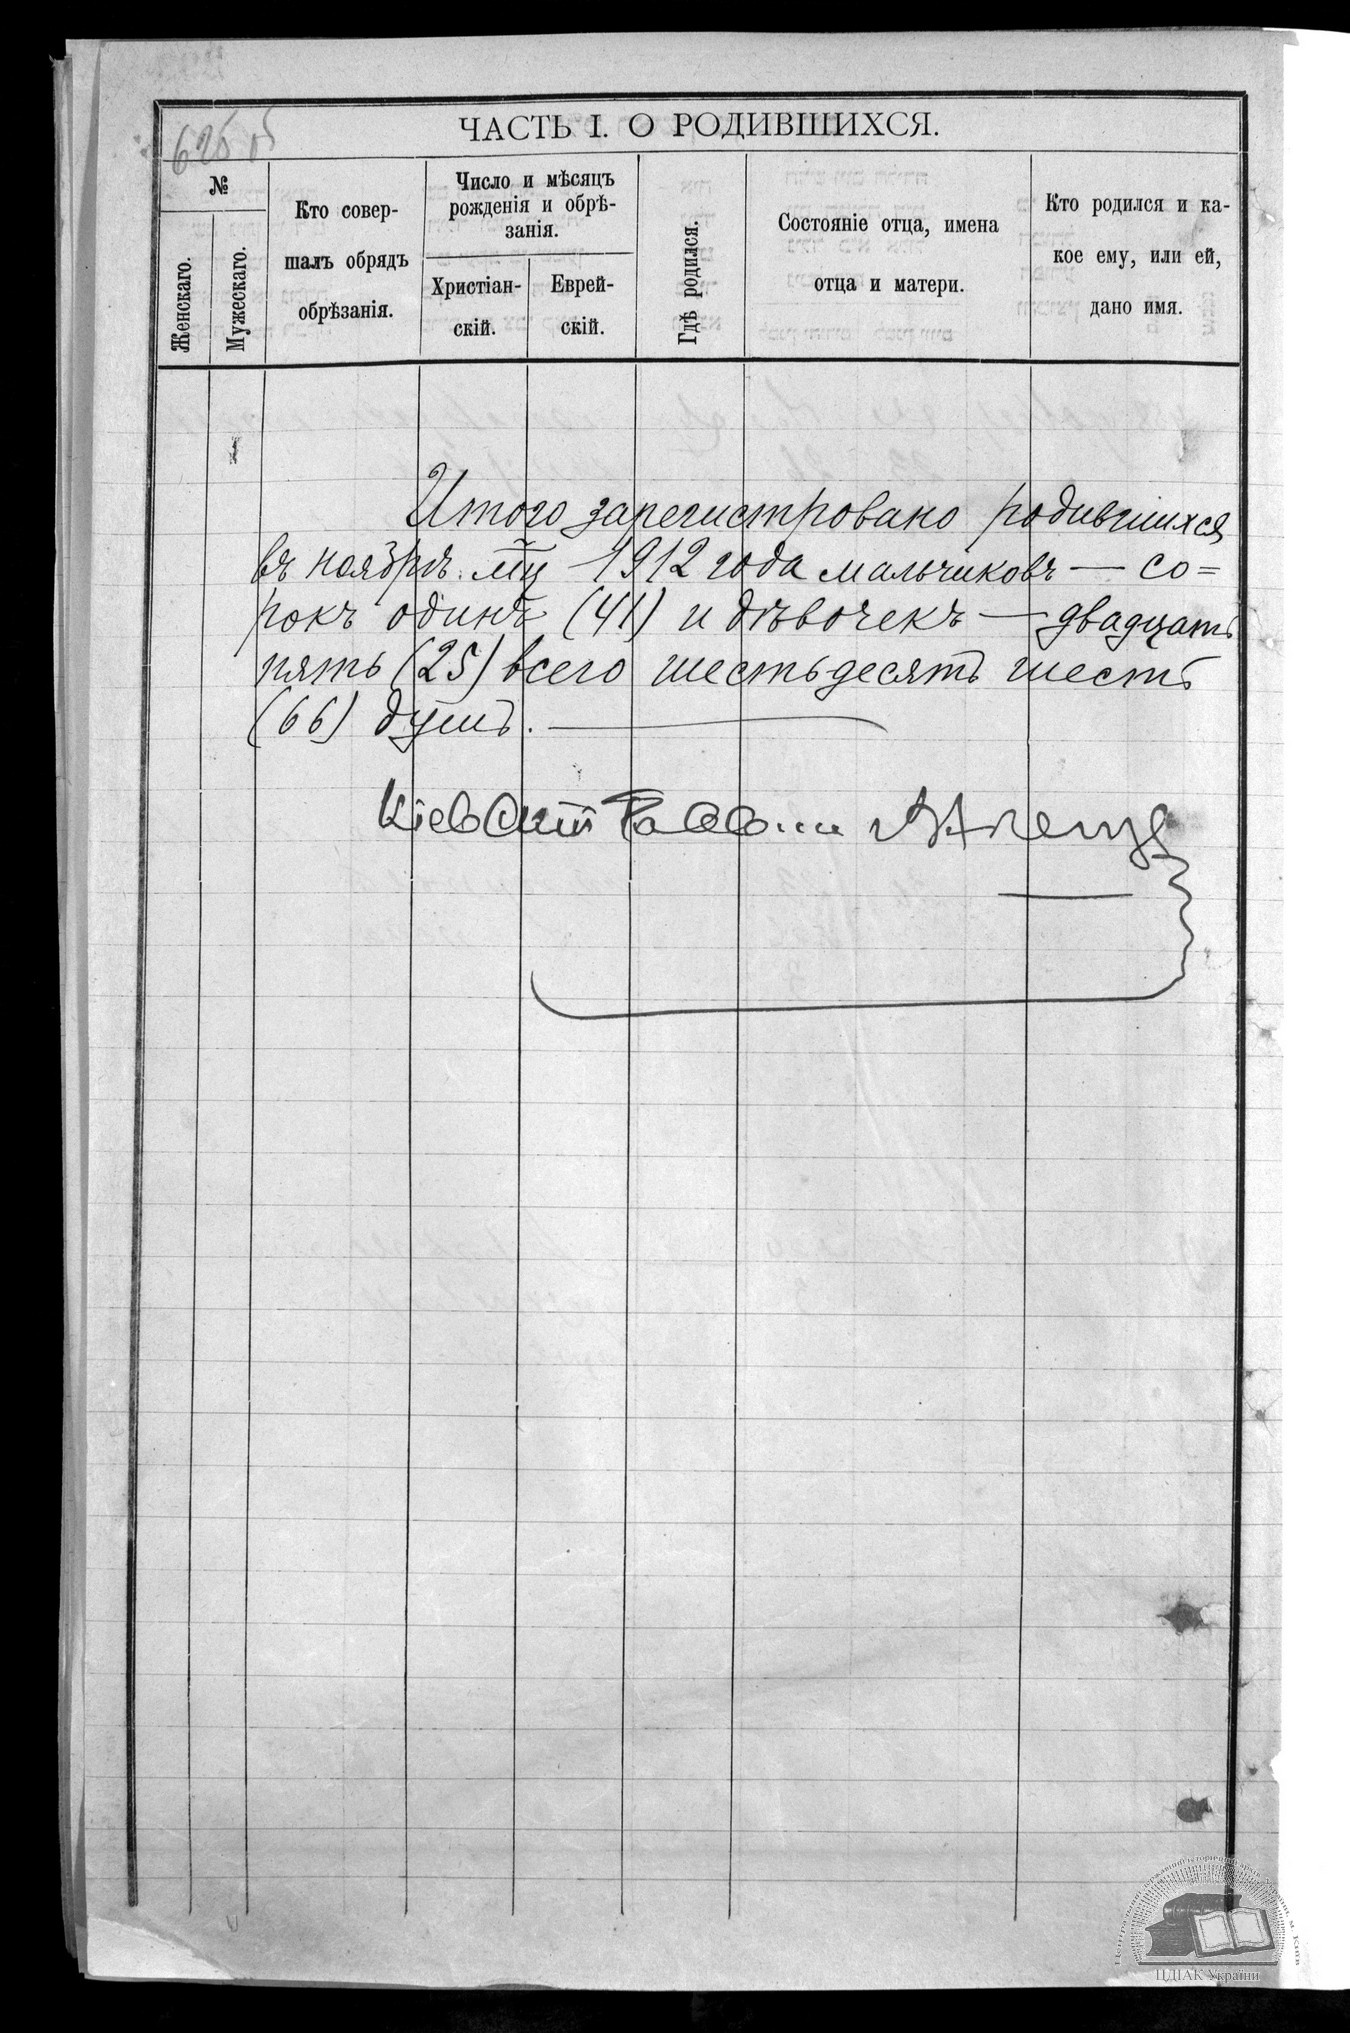 625 об
ЧАСТЬ I. О РОДИВШИХСЯ.
№
Женскаго.
Мужескаго.
Кто совер-
шалъ обрядъ
обрѣзанія.
Число и мѣсяцъ
рожденія и обрѣ-
занія.
Христіан-
скій.
Еврей-
скій.
Гдѣ родился.
Состояніе отца, имена
отца и матери.
Кто родился и ка-
кое ему, или ей,
дано имя.
Итого зарегистровано родившихся
въ ноябрѣ мцѣ 1912 года мальчиковъ — со=
рокъ одинъ (41) и дѣвочекъ — двадцать
пять (25) всего шестьдесятъ шесть
(66) душъ.
Кіевскій Раввинъ
ЦДІАК України